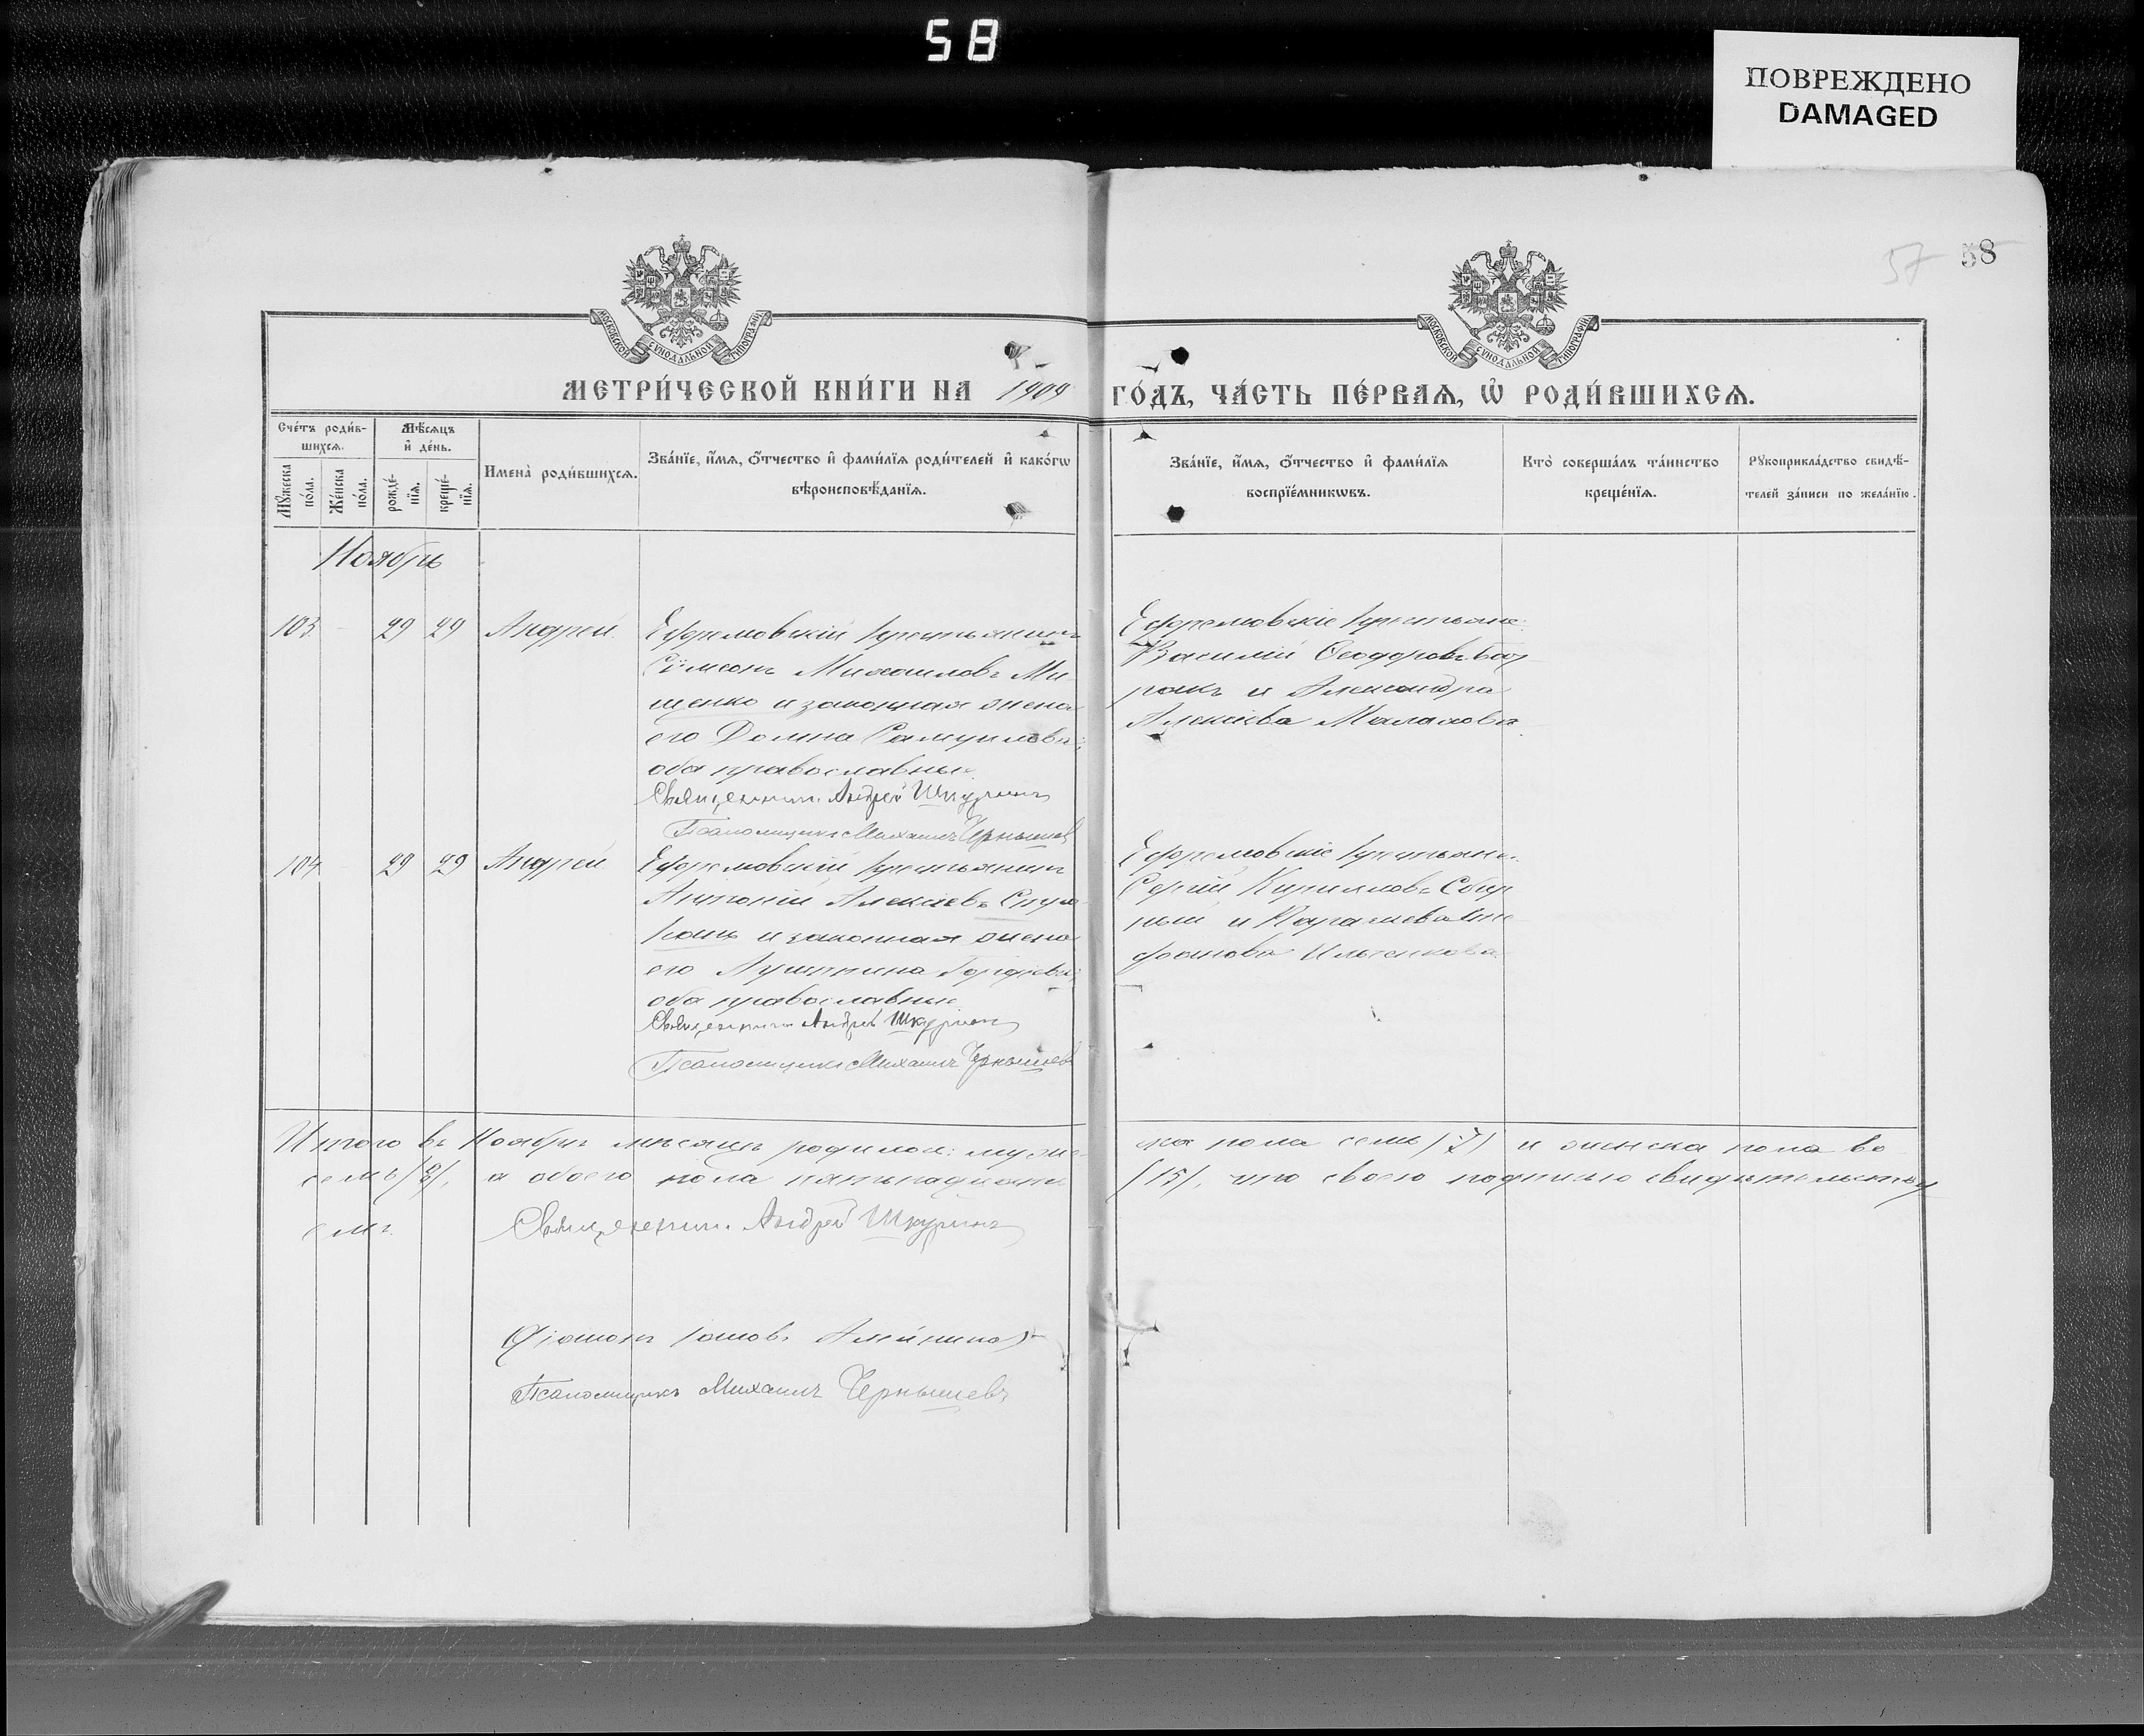 58
ПОВРЕЖДЕНО
DAMAGED
57 58
МОСКОВСКОЙ СѴНОДАЛЬНОЙ ТИПОГРАФІИ
МОСКОВСКОЙ СѴНОДАЛЬНОЙ ТИПОГРАФІИ
МЕТРИ́ЧЕСКОЙ КНИ́ГИ НА 1909 ГО́ДЪ, ЧА́СТЬ ПЕ́РВАѦ, Ѽ РОДИ́ВШИХСѦ.
Сче́тъ роди́в-
шихсѧ.
Мꙋ́жеска по́ла.
Же́нска по́ла.
Мѣ́сѧцъ
и҆ де́нь.
рожде́-
нїѧ.
креще́-
нїѧ.
Имена̀ роди́вшихсѧ.
Зва́нїе, и҆́мѧ, ѻ҆́тчество и҆ фами́лїѧ роди́телей и҆ како́гѡ
вѣроисповѣ́данїѧ.
Зва́нїе, и҆́мѧ, ѻ҆́тчество и҆ фами́лїѧ
воспрїе́мникѡвъ.
Кто̀ соверша́лъ та́инство
креще́нїѧ.
Рꙋкоприкла́дство свидѣ́-
телей за́писи по жела́нїю.
Ноябрь
103 29 29 Андрей.
Ефремовскій крестьянинъ
Сѵмеонъ Михаиловъ Ми
щенко и законная жена
его Домна Самуилова;
оба православные.
Священникъ Андрей Шкуринъ
Псаломщикъ Михаилъ Чернышевъ
Ефремовскіе крестьяне:
Василій Ѳеодоровъ
и Александра
Алексіева Малахова.
104 29 29 Андрей.
Ефремовскій крестьянинъ
Антоній Алексіевъ
и законная жена
его
оба православные
Священникъ Андрей Шкуринъ
Псаломщикъ Михаилъ Чернышевъ
Ефремовскіе крестьяне:
Сергій Кирилловъ
и
Итого въ Ноябрѣ мѣсяцѣ родилось: муже-
ска пола семь /7/ и женска пола во
семь /8/, а обоего пола пятьнадцать
/15/, что своею подписью свидѣтельству
емъ.
Священникъ Андрей Шкуринъ
Діаконъ
Псаломщикъ Михаилъ Чернышевъ